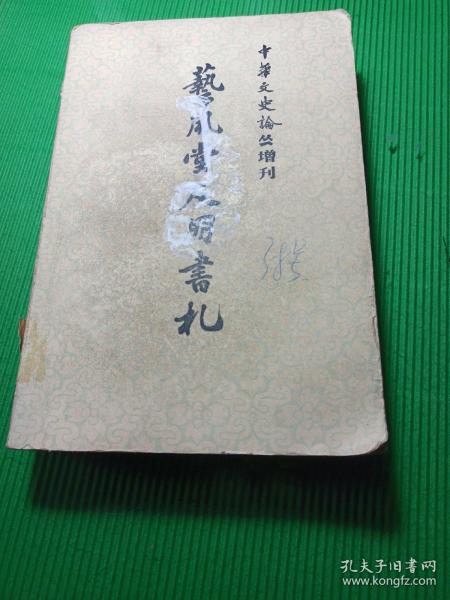 中华文史論丛增刊
藝風堂友朋書札
孔夫子旧書网
www.kongfz.com